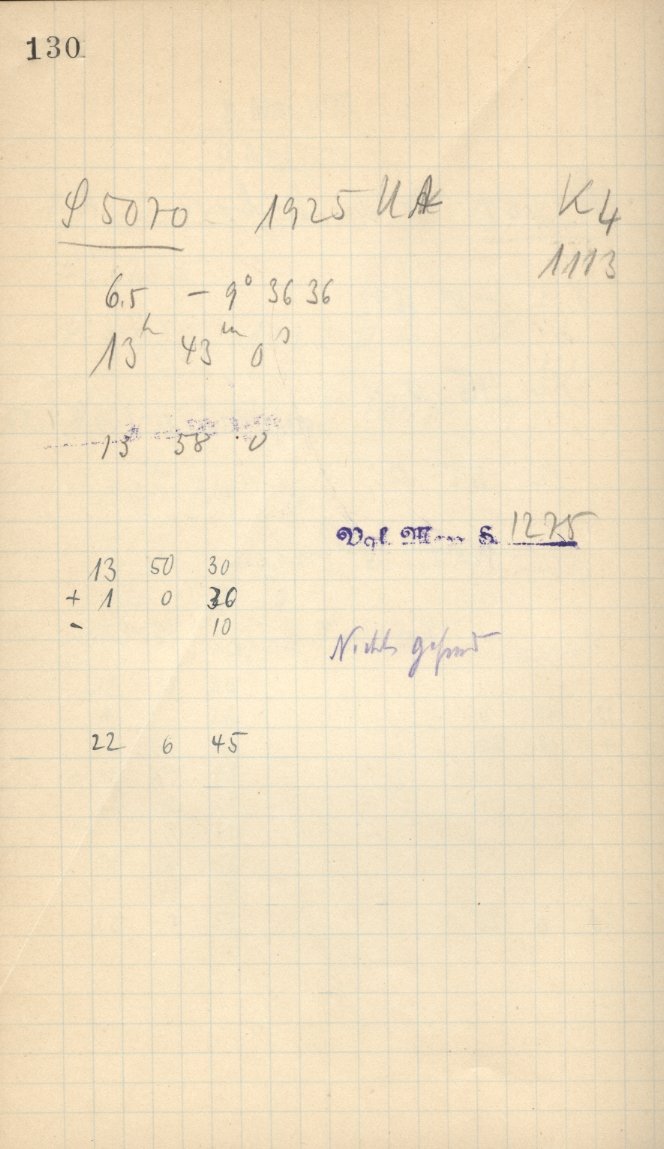 130
S 5070 1925 K4
1113
6.5 - 9° 36 36
13h 43m 0s
13 58 0
1275
13 50 30
+ 1 0 30
- 10
Nichts
22 6 45